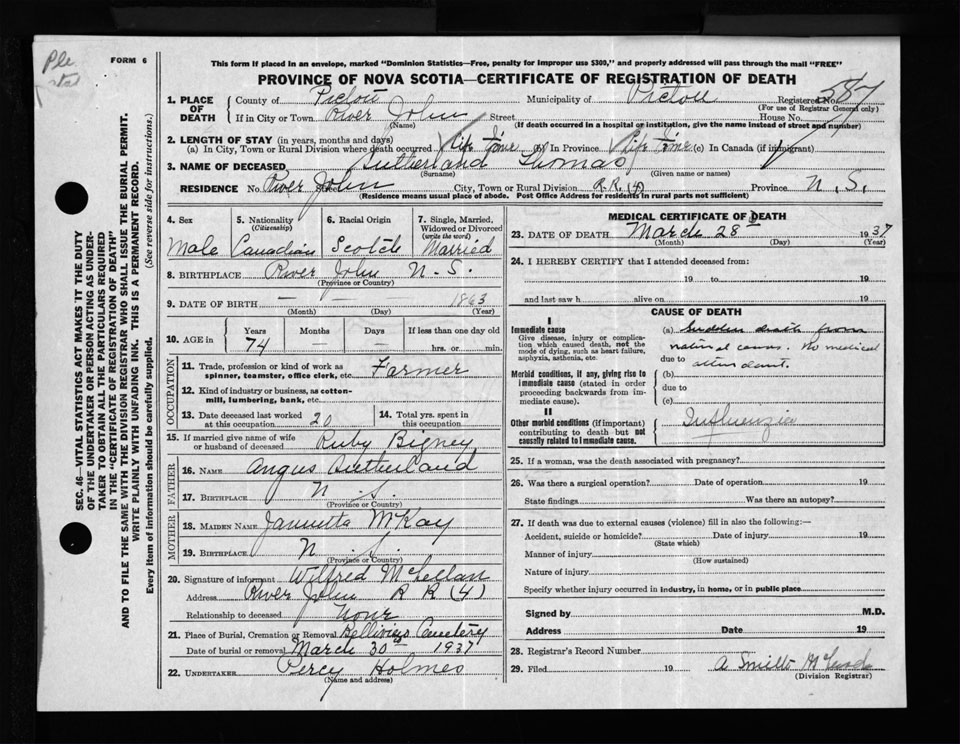 Ple
FORM 6
This form if placed in an envelope, marked "Dominion Statistics—Free, penalty for improper use $300," and properly addressed will pass through the mail "FREE"
PROVINCE OF NOVA SCOTIA—CERTIFICATE OF REGISTRATION OF DEATH
SEC. 46—VITAL STATISTICS ACT MAKES IT THE DUTY
OF THE UNDERTAKER OR PERSON ACTING AS UNDER-
TAKER TO OBTAIN ALL THE PARTICULARS REQUIRED
IN THE "CERTIFICATE OF REGISTRATION OF DEATH"
AND TO FILE THE SAME WITH THE DIVISION REGISTRAR WHO SHALL ISSUE THE BURIAL PERMIT.
WRITE PLAINLY WITH UNFADING INK. THIS IS A PERMANENT RECORD.
Every item of information should be carefully supplied. (See reverse side for instructions.)
1. PLACE OF DEATH County of Pictou Municipality of Pictou Registered No. 587
(For use of Registrar General only)
If in City or Town River John Street House No.
(Name) (If death occurred in a hospital or institution, give the name instead of street and number)
2. LENGTH OF STAY (in years, months and days)
(a) In City, Town or Rural Division where death occurred Life Time (b) In Province Life Time (c) In Canada (if immigrant)
3. NAME OF DECEASED Sutherland Thomas
(Surname) (Given name or names)
RESIDENCE No. River John Street City, Town or Rural Division R.R. (4) Province N.S.
(Residence means usual place of abode. Post Office Address for residents in rural parts not sufficient)
4. Sex 5. Nationality (Citizenship) 6. Racial Origin 7. Single, Married, Widowed or Divorced (write the word)
Male Canadian Scotch Married
8. BIRTHPLACE River John N.S.
(Province or Country)
9. DATE OF BIRTH — — 1863
(Month) (Day) (Year)
10. AGE in Years Months Days If less than one day old
74 — — hrs. or min.
OCCUPATION
11. Trade, profession or kind of work as spinner, teamster, office clerk, etc. Farmer
12. Kind of industry or business, as cotton-mill, lumbering, bank, etc.
13. Date deceased last worked at this occupation 20 14. Total yrs. spent in this occupation
15. If married give name of wife or husband of deceased Ruby Bigney
FATHER
16. NAME Angus Sutherland
17. BIRTHPLACE N.S.
(Province or Country)
MOTHER
18. MAIDEN NAME Jannetta McKay
19. BIRTHPLACE N.S.
(Province or Country)
20. Signature of informant Wilfred McLellan
Address River John R R (4)
Relationship to deceased None
21. Place of Burial, Cremation or Removal Cemetery
Date of burial or removal March 30 1937
22. UNDERTAKER Percy Holmes
(Name and address)
MEDICAL CERTIFICATE OF DEATH
23. DATE OF DEATH March 28th 1937
(Month) (Day)
24. I HEREBY CERTIFY that I attended deceased from:
19 to 19
and last saw h alive on 19
CAUSE OF DEATH
I
Immediate cause (a) Sudden death from
Give disease, injury or complication which caused death, not the mode of dying, such as heart failure, asphyxia, asthenia, etc.
natural causes. No medical
due to attendant.
Morbid conditions, if any, giving rise to immediate cause (stated in order proceeding backwards from immediate cause).
(b)
due to
(c)
II
Other morbid conditions (if important) contributing to death but not causally related to immediate cause. Influenzia
25. If a woman, was the death associated with pregnancy?
26. Was there a surgical operation? Date of operation 19
State findings Was there an autopsy?
27. If death was due to external causes (violence) fill in also the following:—
Accident, suicide or homicide? Date of injury 19
(State which)
Manner of injury
(How sustained)
Nature of injury
Specify whether injury occurred in industry, in home, or in public place
Signed by M.D.
Address Date 19
28. Registrar's Record Number
29. Filed 19 A Smith McLeod
(Division Registrar)